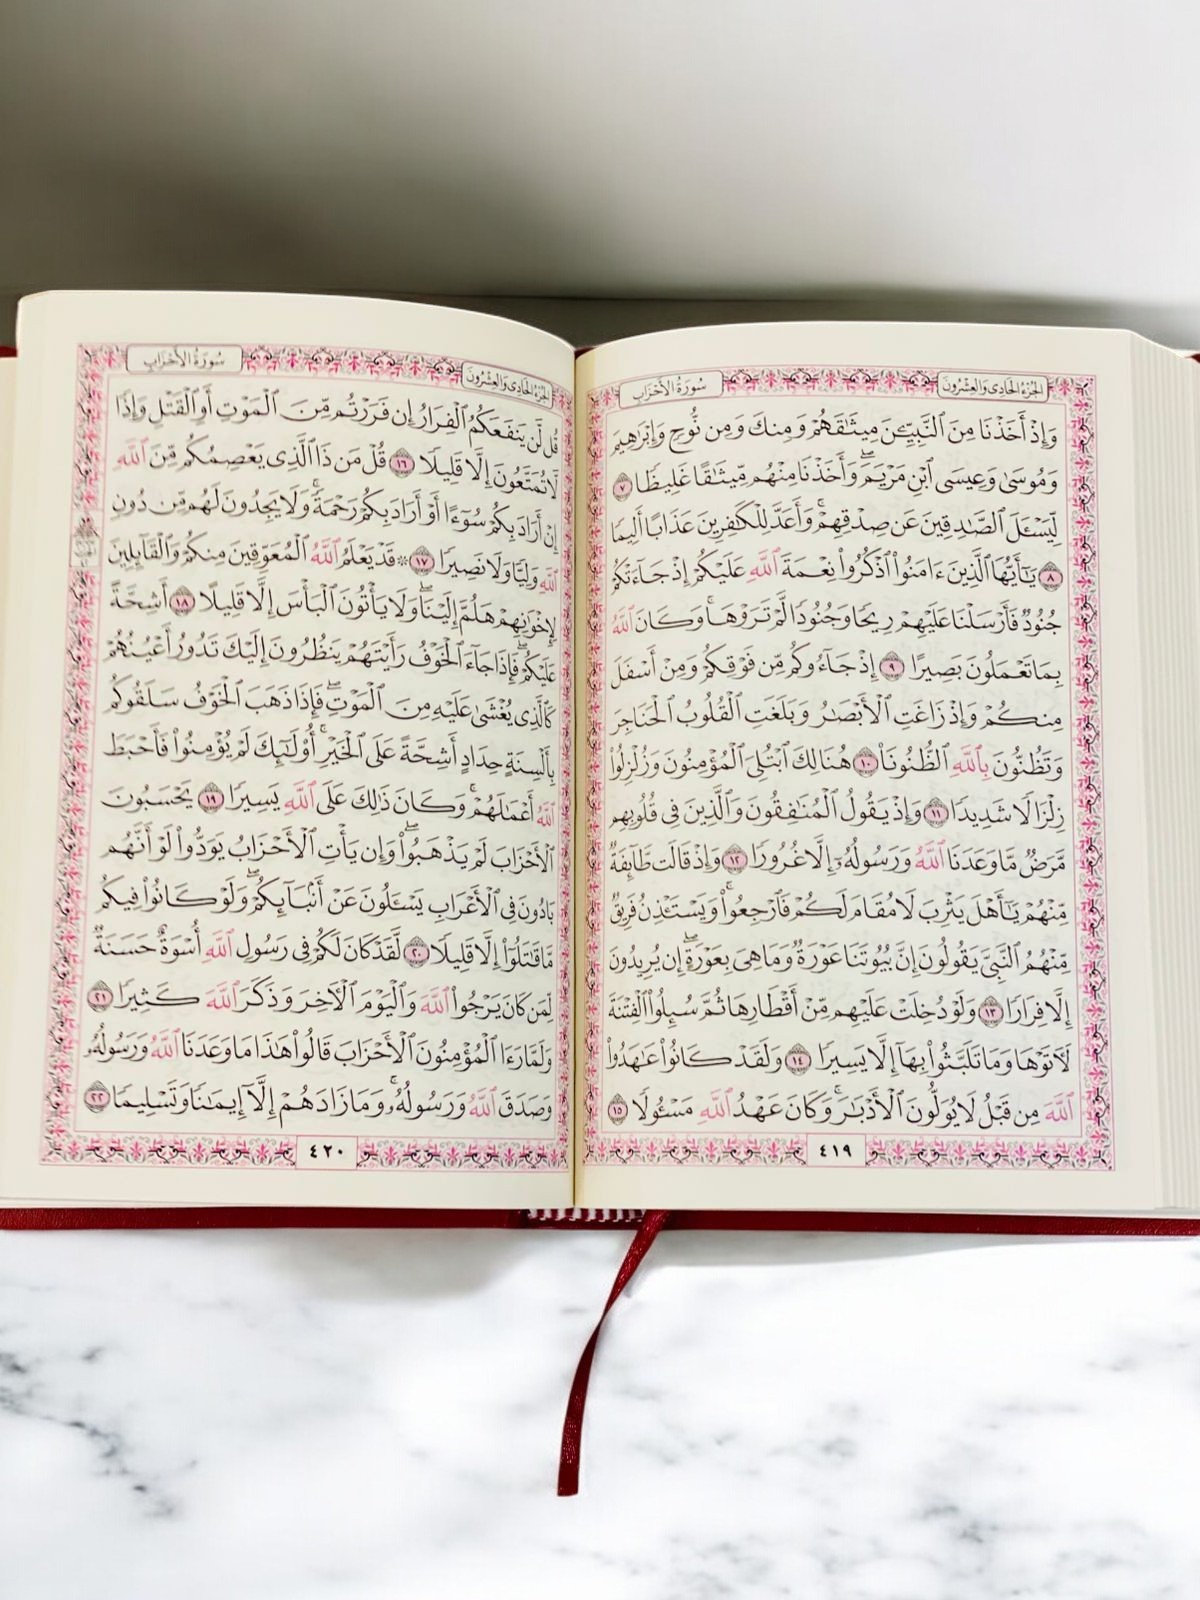 الجزء الحادي والعشرون
سورة الأحزاب
وَإِذْ أَخَذْنَا مِنَ ٱلنَّبِيِّـۧنَ مِيثَٰقَهُمْ وَمِنكَ وَمِن نُّوحٍ وَإِبْرَٰهِيمَ
وَمُوسَىٰ وَعِيسَى ٱبْنِ مَرْيَمَۖ وَأَخَذْنَا مِنْهُم مِّيثَٰقًا غَلِيظًا ٧
لِّيَسْـَٔلَ ٱلصَّٰدِقِينَ عَن صِدْقِهِمْۚ وَأَعَدَّ لِلْكَٰفِرِينَ عَذَابًا أَلِيمًا
٨ يَٰٓأَيُّهَا ٱلَّذِينَ ءَامَنُوا۟ ٱذْكُرُوا۟ نِعْمَةَ ٱللَّهِ عَلَيْكُمْ إِذْ جَآءَتْكُمْ
جُنُودٌ فَأَرْسَلْنَا عَلَيْهِمْ رِيحًا وَجُنُودًا لَّمْ تَرَوْهَاۚ وَكَانَ ٱللَّهُ
بِمَا تَعْمَلُونَ بَصِيرًا ٩ إِذْ جَآءُوكُم مِّن فَوْقِكُمْ وَمِنْ أَسْفَلَ
مِنكُمْ وَإِذْ زَاغَتِ ٱلْأَبْصَٰرُ وَبَلَغَتِ ٱلْقُلُوبُ ٱلْحَنَاجِرَ
وَتَظُنُّونَ بِٱللَّهِ ٱلظُّنُونَا۠ ١٠ هُنَالِكَ ٱبْتُلِيَ ٱلْمُؤْمِنُونَ وَزُلْزِلُوا۟
زِلْزَالًا شَدِيدًا ١١ وَإِذْ يَقُولُ ٱلْمُنَٰفِقُونَ وَٱلَّذِينَ فِي قُلُوبِهِم
مَّرَضٌ مَّا وَعَدَنَا ٱللَّهُ وَرَسُولُهُۥٓ إِلَّا غُرُورًا ١٢ وَإِذْ قَالَت طَّآئِفَةٌ
مِّنْهُمْ يَٰٓأَهْلَ يَثْرِبَ لَا مُقَامَ لَكُمْ فَٱرْجِعُوا۟ۚ وَيَسْتَـْٔذِنُ فَرِيقٌ
مِّنْهُمُ ٱلنَّبِيَّ يَقُولُونَ إِنَّ بُيُوتَنَا عَوْرَةٌ وَمَا هِيَ بِعَوْرَةٍۖ إِن يُرِيدُونَ
إِلَّا فِرَارًا ١٣ وَلَوْ دُخِلَتْ عَلَيْهِم مِّنْ أَقْطَارِهَا ثُمَّ سُئِلُوا۟ ٱلْفِتْنَةَ
لَـَٔاتَوْهَا وَمَا تَلَبَّثُوا۟ بِهَآ إِلَّا يَسِيرًا ١٤ وَلَقَدْ كَانُوا۟ عَٰهَدُوا۟
ٱللَّهَ مِن قَبْلُ لَا يُوَلُّونَ ٱلْأَدْبَٰرَۚ وَكَانَ عَهْدُ ٱللَّهِ مَسْـُٔولًا ١٥
٤١٩
الجزء الحادي والعشرون
سورة الأحزاب
قُل لَّن يَنفَعَكُمُ ٱلْفِرَارُ إِن فَرَرْتُم مِّنَ ٱلْمَوْتِ أَوِ ٱلْقَتْلِ وَإِذًا
لَّا تُمَتَّعُونَ إِلَّا قَلِيلًا ١٦ قُلْ مَن ذَا ٱلَّذِي يَعْصِمُكُم مِّنَ ٱللَّهِ
إِنْ أَرَادَ بِكُمْ سُوٓءًا أَوْ أَرَادَ بِكُمْ رَحْمَةًۚ وَلَا يَجِدُونَ لَهُم مِّن دُونِ
ٱللَّهِ وَلِيًّا وَلَا نَصِيرًا ١٧ ۞ قَدْ يَعْلَمُ ٱللَّهُ ٱلْمُعَوِّقِينَ مِنكُمْ وَٱلْقَآئِلِينَ
لِإِخْوَٰنِهِمْ هَلُمَّ إِلَيْنَاۖ وَلَا يَأْتُونَ ٱلْبَأْسَ إِلَّا قَلِيلًا ١٨ أَشِحَّةً
عَلَيْكُمْۖ فَإِذَا جَآءَ ٱلْخَوْفُ رَأَيْتَهُمْ يَنظُرُونَ إِلَيْكَ تَدُورُ أَعْيُنُهُمْ
كَٱلَّذِي يُغْشَىٰ عَلَيْهِ مِنَ ٱلْمَوْتِۖ فَإِذَا ذَهَبَ ٱلْخَوْفُ سَلَقُوكُم
بِأَلْسِنَةٍ حِدَادٍ أَشِحَّةً عَلَى ٱلْخَيْرِۚ أُو۟لَٰٓئِكَ لَمْ يُؤْمِنُوا۟ فَأَحْبَطَ
ٱللَّهُ أَعْمَٰلَهُمْۚ وَكَانَ ذَٰلِكَ عَلَى ٱللَّهِ يَسِيرًا ١٩ يَحْسَبُونَ
ٱلْأَحْزَابَ لَمْ يَذْهَبُوا۟ۖ وَإِن يَأْتِ ٱلْأَحْزَابُ يَوَدُّوا۟ لَوْ أَنَّهُم
بَادُونَ فِي ٱلْأَعْرَابِ يَسْـَٔلُونَ عَنْ أَنۢبَآئِكُمْۖ وَلَوْ كَانُوا۟ فِيكُم
مَّا قَٰتَلُوٓا۟ إِلَّا قَلِيلًا ٢٠ لَّقَدْ كَانَ لَكُمْ فِي رَسُولِ ٱللَّهِ أُسْوَةٌ حَسَنَةٌ
لِّمَن كَانَ يَرْجُوا۟ ٱللَّهَ وَٱلْيَوْمَ ٱلْـَٔاخِرَ وَذَكَرَ ٱللَّهَ كَثِيرًا ٢١
وَلَمَّا رَءَا ٱلْمُؤْمِنُونَ ٱلْأَحْزَابَ قَالُوا۟ هَٰذَا مَا وَعَدَنَا ٱللَّهُ وَرَسُولُهُۥ
وَصَدَقَ ٱللَّهُ وَرَسُولُهُۥۚ وَمَا زَادَهُمْ إِلَّآ إِيمَٰنًا وَتَسْلِيمًا ٢٢
٤٢٠